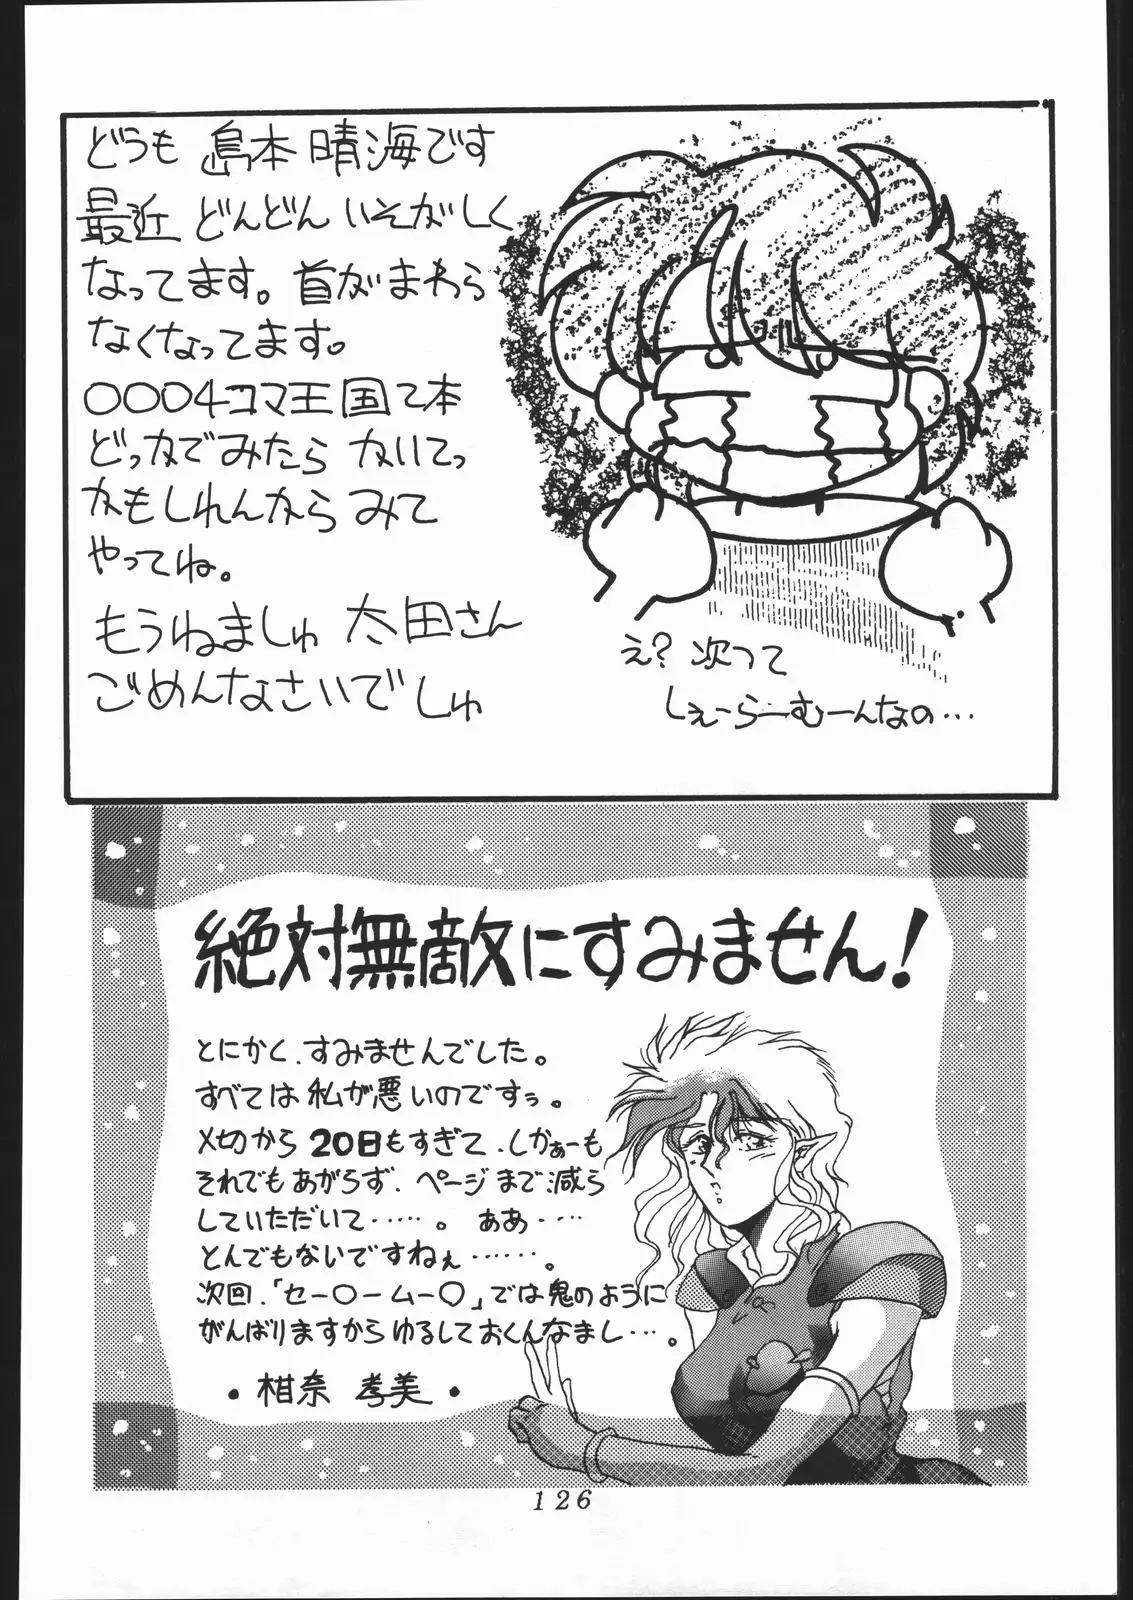 どうも 島本 晴海です
最近 どんどん いそがしく
なってます。首がまわら
なくなってます。
〇〇〇4コマ王国て本
どっかでみたら かいてっ
かもしれんから みて
やってね。
もうねましゅ 太田さん
ごめんなさいでしゅ
え? 次って
しぇーらーむーんなの…
絶対無敵にすみません!
とにかく、すみませんでした。
すべては私が悪いのですぅ。
〆切から20日もすぎて、しかぁーも
それでもあがらず、ページまで減ら
していただいて……。ああ…
とんでもないですねぇ……。
次回、「セー〇ームー〇」では鬼のように
がんばりますからゆるしておくんなまし…。
・柑奈 孝美・
126